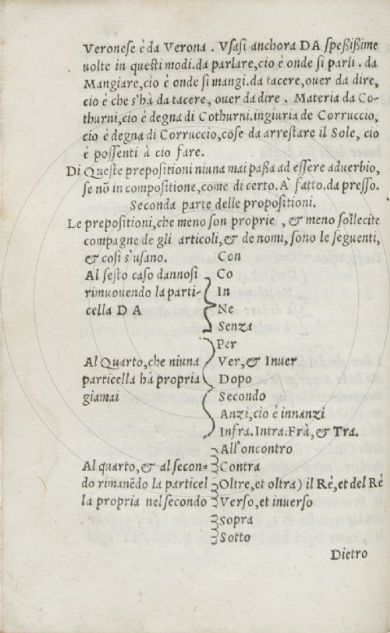 Veronese è da Verona . Vsasi anchora DA spessissime
uolte in questi modi. da parlare, cio è onde si parli . da
Mangiare, cio è onde si mangi. da tacere, ouer da dire,
cio è che s'hà da tacere, ouer da dire . Materia da Co-
thurni, cio è degna di Cothurni. ingiuria de Corruccio,
cio è degna di Corruccio, cose da arrestare il Sole, cio
è possenti à cio fare.
Di Queste prepositioni niuna mai passa ad essere aduerbio,
se nō in compositione, come di certo. A' fatto. da presso.
Seconda parte delle propositioni.
Le prepositioni, che meno son proprie , & meno sollecite
compagne de gli articoli, & de nomi, sono le seguenti,
& così s'usano. Con
Al sesto caso dannosi Co
rimuouendo la parti- In
cella DA Ne
Senza
Per
Al Quarto, che niuna Ver, & Inuer
particella hà propria Dopo
giamai Secondo
Anzi, cio è innanzi
Infra. Intra. Frà, & Tra.
All'oncontro
Al quarto, & al secon- Contra
do rimanēdo la particel Oltre, et oltra) il Rè, et del Rè
la propria nel secondo Verso, et inuerso
Sopra
Sotto
Dietro